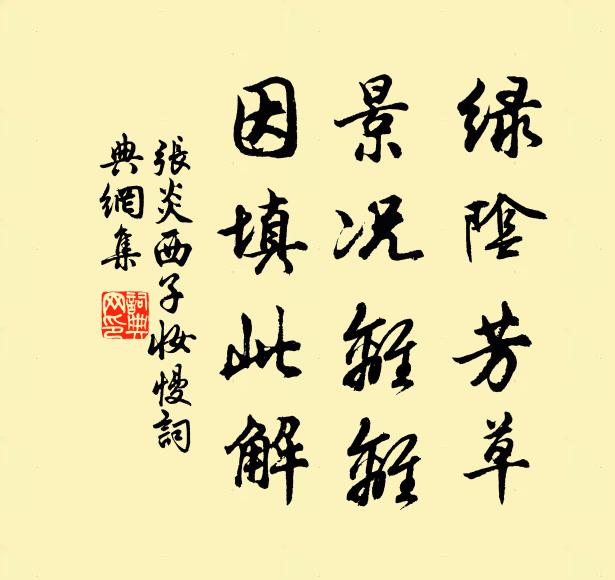 绿陰芳草
景况離離
因填此解
張炎西子妝慢詞
典網集
詞典
网印